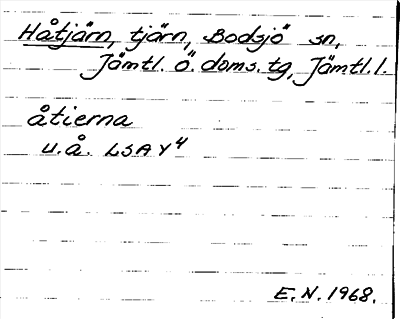 Håtjärn, tjärn, Bodsjö sn,
Jämtl. Ö. doms. tg, Jämtl. l.
åtierna
u.å. LSA Y4
E. N. 1968.